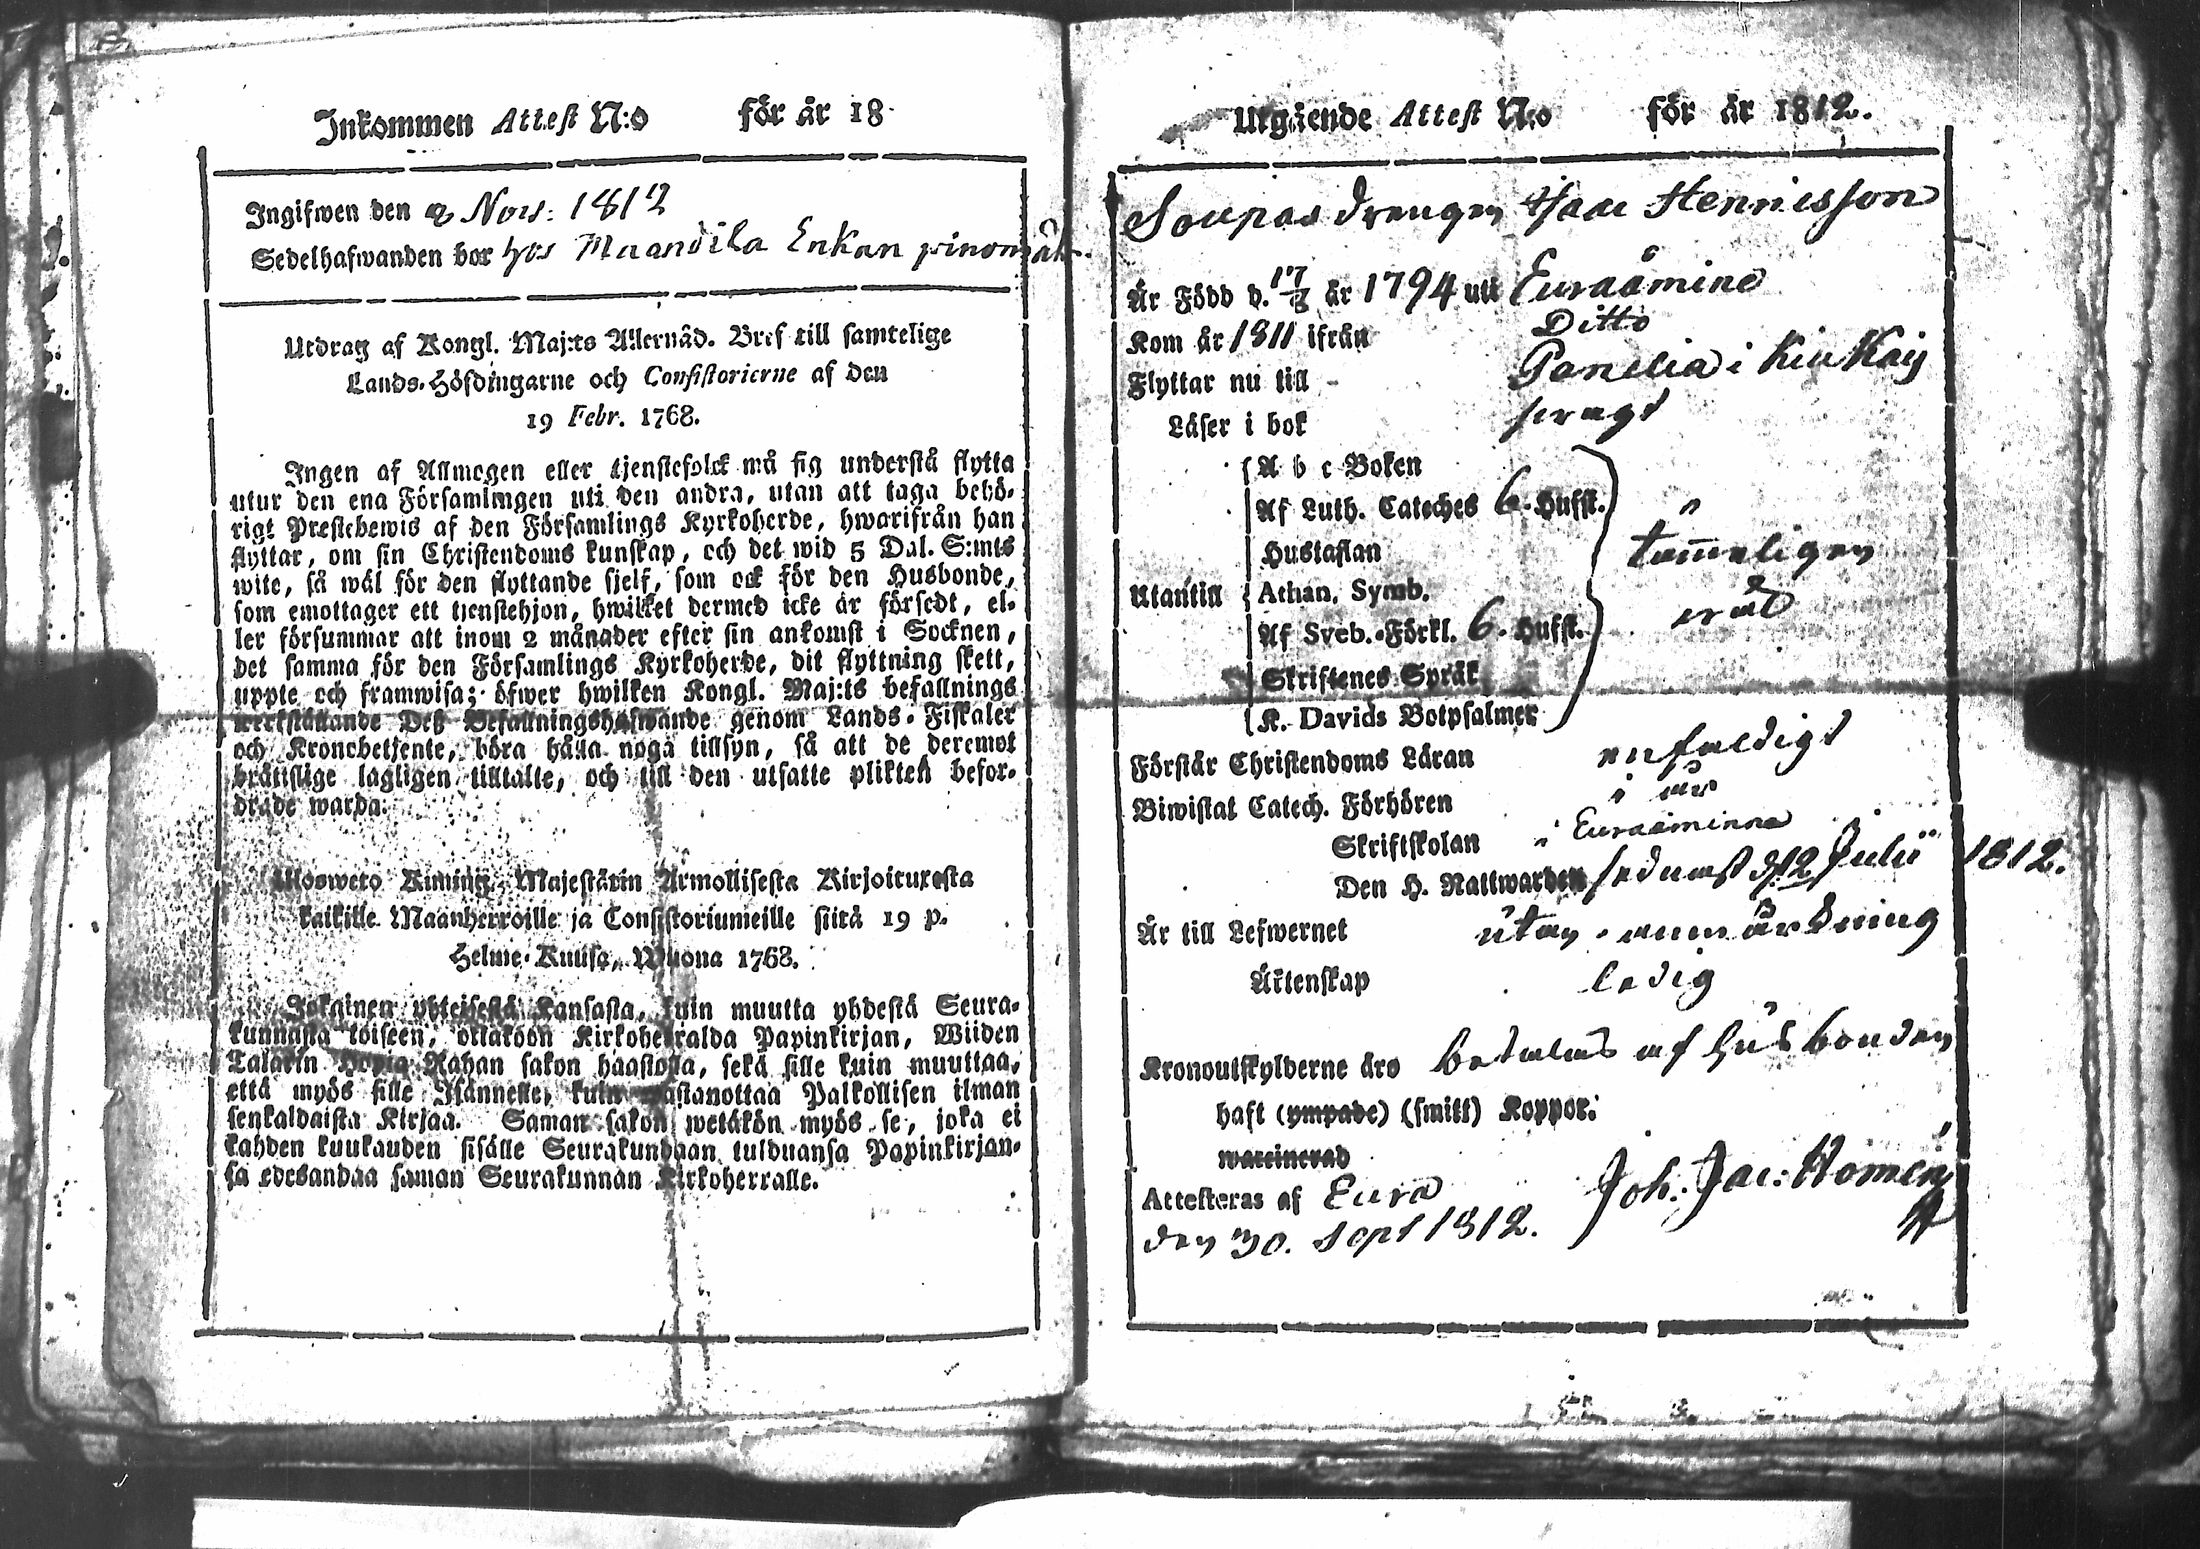 Inkommen Attest N:o för år 18
Ingifwen den 2 Nov: 1812
Sedelhafwanden bor hos Maandila Enkan
Utdrag af Kongl. Maj:ts Allernåd. Bref till samtelige
Lands-Höfdingarne och Consistorierne af den
19 Febr. 1768.
Ingen af Allmogen eller tjenstefolck må sig understå flytta
utur den ena Församlingen uti den andra, utan att taga behö-
rigt Prestebewis af den Församlings Kyrkoherde, hwarifrån han
flyttar, om sin Christendoms kunskap, och det wid 5 Dal. S:mts
wite, så wäl för den flyttande sjelf, som ock för den Husbonde,
som emottager ett tjenstehjon, hwilket dermed icke är försedt, el-
ler försummar att inom 2 månader efter sin ankomst i Socknen,
det samma för den Församlings Kyrkoherde, dit flyttning skett,
uppte och framwisa; öfwer hwilken Kongl. Maj:ts befallnings
werkställande Deß Befallningshafwande genom Lands-Fiskaler
och Kronobetjente, böra hålla noga tillsyn, så att de deremot
brätslige lagligen tilltalte, och till den utsatte plikten befor-
drade warda.
Uloswето Kuning. Majestätin Armollisesta Kirjoituxesta
kaikille Maanherroille ja Consistoriumeille siitä 19 p.
Helme-Kuusa, Wuona 1768.
Jokainen yhteisestä Kansasta, kuin muutta yhdestä Seura-
kunnasta toiseen, ottakoon Kirkoherralda Papinkirjan, Wiiden
Talarin Hopia Rahan sakon haastolla, sekä sille kuin muuttaa,
että myös sille Isännelle, kuin wastanottaa Palkollisen ilman
senkaldaista Kirjaa. Saman sakon wetäkön myös se, joka ei
kahden kuukauden sisälle Seurakundaan tulduansa Papinkirjan-
sa edesandaa saman Seurakunnan Kirkoherralle.
Utgående Attest N:o för år 1812.
drengen Isaac Henricsson
Är Född d. 17/3 år 1794 uti Euraåmine
Kom år 1811 ifrån Ditto
Flyttar nu till Panelia i Kiukais
Läser i bok swagt
A b c Boken
Af Luth. Cateches 6. Hufst.
Hustaflan tämeligen
Utantill Athan. Symb.
Af Sveb. Förkl. 6. Hufst.
Skriftenes Språk
K. Davids Botpsalmer
Förstår Christendoms Läran enfaldigt
Biwistat Catech. Förhören i år
Skriftskolan i Euraåminne
Den H. Nattwarden sednast d. 12 Julii 1812.
Är till Lefwernet utan anmärkning
Äktenskap ledig
Kronoutskylderne äro betalas af husbonden
haft (ympade) (smitt) Koppor.
waccinerad
Attesteras af Eura Joh: Jac: Homén
den 30. Sept 1812.